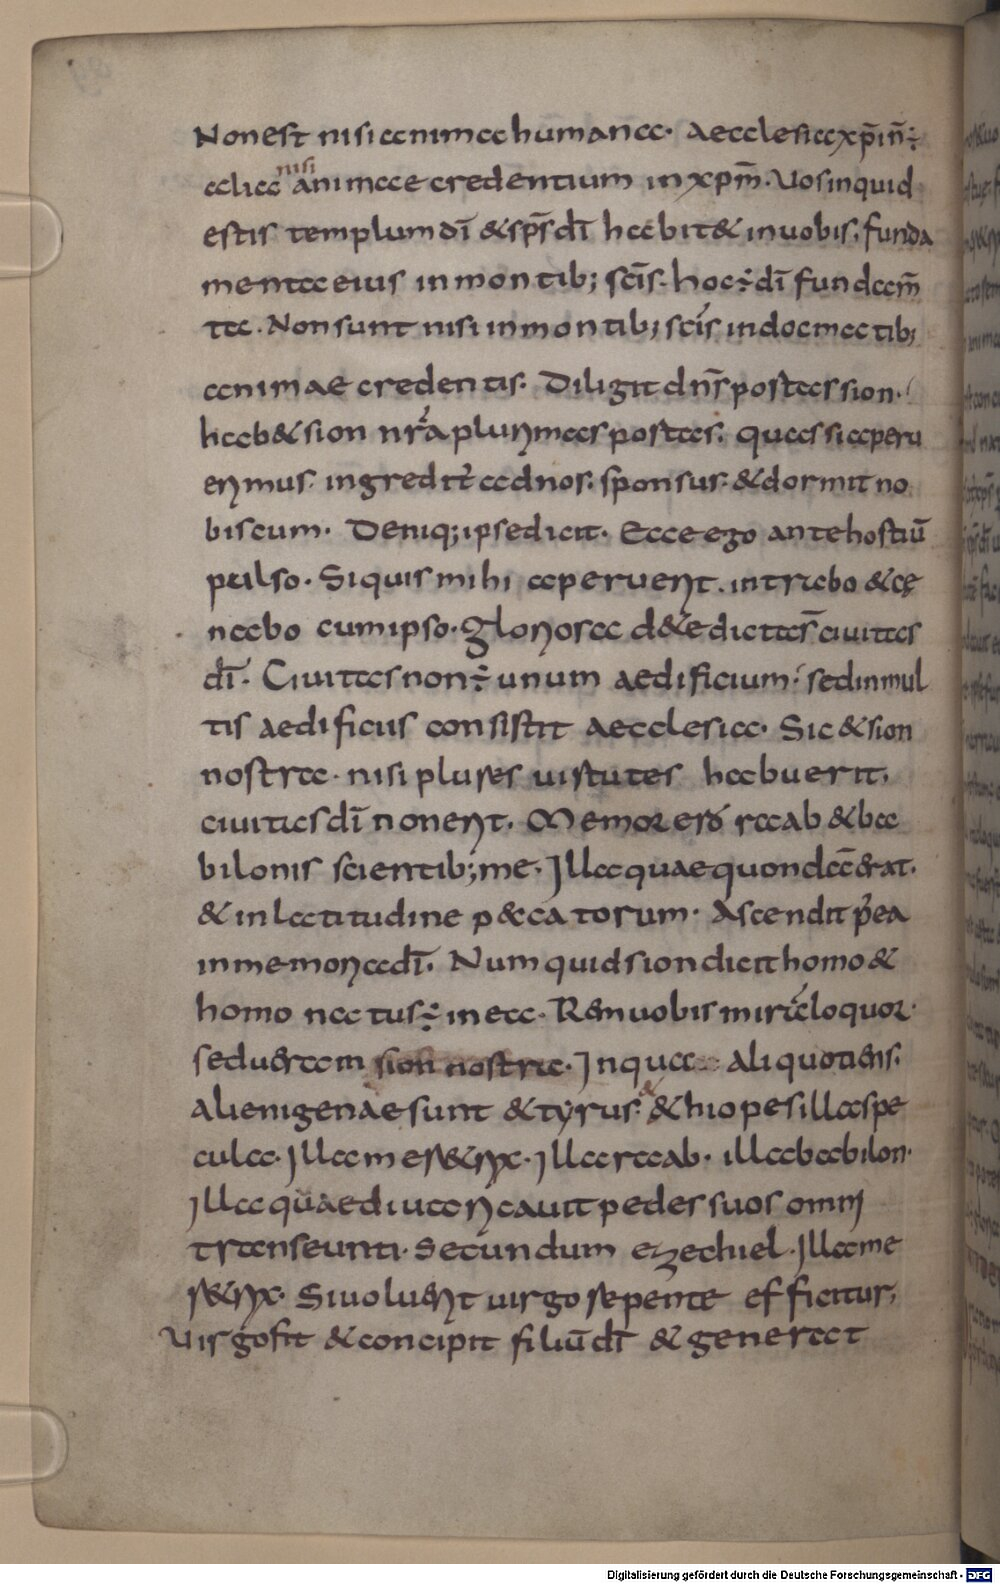 Non est nisi anima humana. aecclesia xp̄i n̄ ÷
alia nisi animae credentium in xp̄m. Vos inquid
estis templum dī & sp̄s dī habit& in uobis, funda
menta eius in montib; sc̄is. hoc ÷ dī fundam̄
ta. Non sunt nisi in montib; sc̄is in docmatib;
animae credentis. Diligit dn̄s portas sion.
hab&sion nr̄a plurimas portas. quas si aperu
erimus. ingredit̄ ad nos. sponsus. & dormit no
biscum. Deniq; ipse dicit. Ecce ego ante hostiū
pulso. Si quis mihi aperuerit. intrabo & cę
nabo cum ipso. Gloriosa d& e dicta s̄ ciuitas
dī. Ciuitas non ÷ unum aedificium. sed in mul
tis aedificiis consistit aecclesia. Sic & sion
nostra. nisi plures uirtutes habuerit.
ciuitas dī non erit. Memor ero raab & ba
bilonis scientib; me. Illa quae quondā erat.
& in latitudine peccatorum. Ascendit p̄ea
in memoria dī. Numquid sion dicit homo &
homo natus ÷ in ea. Rem uobis mirā loquor.
sed uertam sion nostra. In qua aliquotiens.
alienigenae sunt & tyrus. & & hiopes illa spe
cula. Illa mer&rix. Illa raab. illa babilon.
Illa quae diuaricauit pedes suos omni
transeunti. Secundum ezechiel. Illa me
r&rix. Si uoluerit uirgo repente efficitur,
Virgo fit & concipit filiū dī & generat